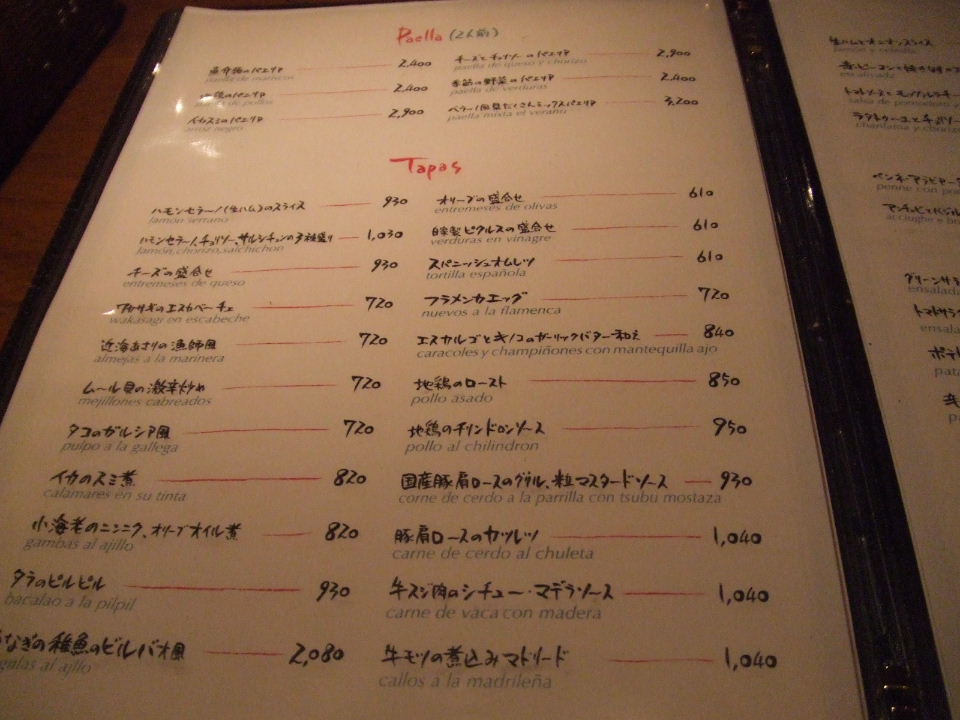 Paella (2人前)
魚介類のパエリア 2,400
paella de mariscos
地鶏のパエリア 2,400
de pollos
イカスミのパエリア 2,900
arroz negro
チーズとチョリソーのパエリア 2,900
paella de queso y chorizo
季節の野菜のパエリア 2,400
paella de verduras
ベラーノ風具だくさんミックスパエリア 3,200
paella mixta el veranu
Tapas
ハモンセラーノ(生ハム)のスライス 930
jamon serrano
ハモンセラーノ、チョリソー、サルシチョンの3種盛り 1,030
jamon,chorizo,salchichon
チーズの盛合せ 930
entremeses de queso
ワカサギのエスカベーチェ 720
wakasagi en escabeche
近海あさりの漁師風 720
almejas a la marinera
ムール貝の激辛炒め 720
mejillones cabreados
タコのガルシア風 720
pulpo a la gallega
イカのスミ煮 820
calamares en su tinta
小海老のニンニク、オリーブオイル煮 820
gambas al ajillo
タラのピルピル 930
bacalao a la pilpil
なぎの稚魚のビルバオ風 2,080
gulas al ajillo
オリーブの盛合せ 610
entremeses de olivas
自家製ピクルスの盛合せ 610
verduras en vinagre
スパニッシュオムレツ 610
tortilla española
フラメンカエッグ 720
nuevos a la flamenca
エスカルゴとキノコのガーリックバター和え 840
caracoles y champiñones con mantequilla ajo
地鶏のロースト 850
pollo asado
地鶏のチリンドロンソース 950
pollo al chilindron
国産豚肩ロースのグリル、粒マスタードソース 930
corne de cerdo a la parrilla con tsubu mostaza
豚肩ロースのカツレツ 1,040
carne de cerdo al chuleta
牛スジ肉のシチュー・マデラソース 1,040
carne de vaca con madera
牛モツの煮込みマドリード 1,040
callos a la madrileña
生ハムとオニオンスライス
トマトソースとモッツァレラチー
salsa de pomodoro y
ラタトゥーユとチョリソー
chanfaina y chorizo
ペンネアラビアー
penne con po
アンチョビとバジル
acciughe e b
グリーンサラ
ensalada
トマトサラ
ensala
ポテ
pata